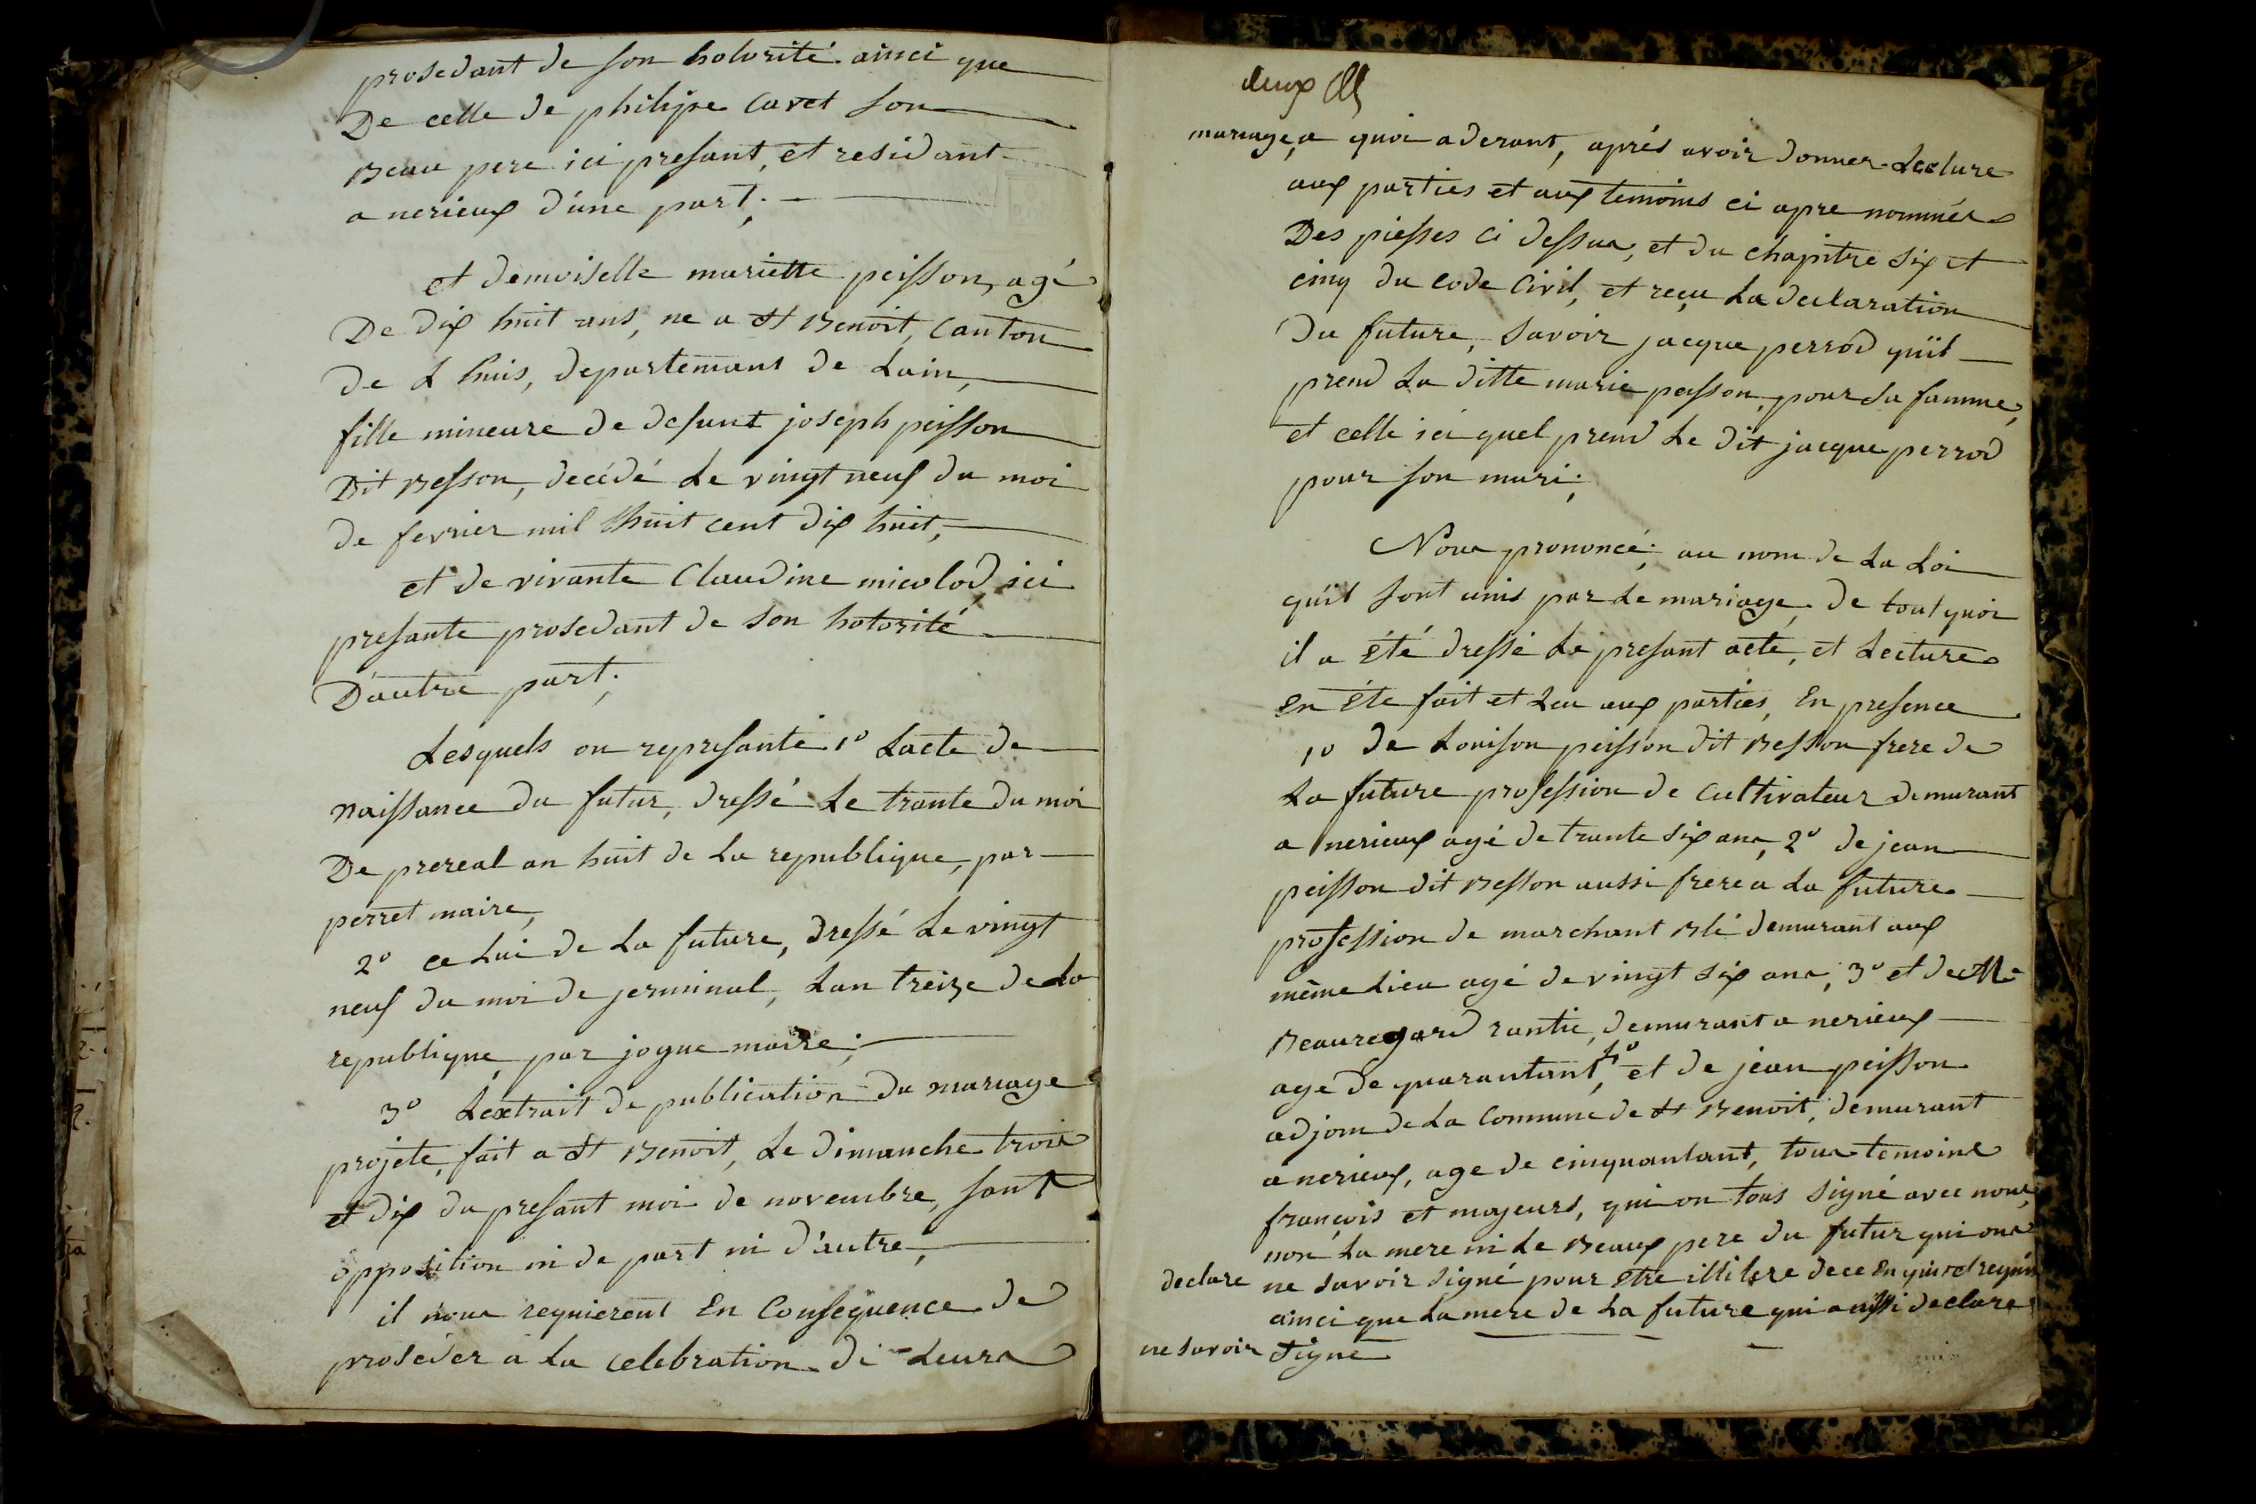 prosedant de son hotorité ainci que
De celle de philipe Cavet son
Beau pere ici presant, et residant
a nerieux d'une part;
et demoiselle mariette peisson, agé
De dix huit ans, ne a St Benoit, Canton
de L huis, departemant de Lain,
fille mineure de defunt joseph peisson
Dit Besson, decédé Le vingt neuf du moi
de fevrier mil huit cent dix huit,
et de vivante Claudine micolod, ici
presante prosedant de son hotorité
D'autre part;
Lesquels on represanté 1º Lacte de
naissance du futur, dressé Le trante du moi
De prereal an huit de La republique, par
perret maire,
2º ce Lui de La future, dressé Le vingt
neuf du moi de jerminal, Lan treize de La
republique, par jogue maire;
3º Lextrait de publication du mariage
projeté, fait a St Benoit, Le dimanche trois
et dix du presant moi de novembre, sant
opposition ni de part ni d'autre,
il nous requierent En Consequence de
proséder a La celebration de Leurs
deux
mariage, a quoi aderant, aprés avoir donner Lecture
aux parties et aux temoins ci apre nommés
Des piesses ci dessus, et du chapitre six et
cinq du code Civil, et reçu La declaration
Du future, Savoir jacque perrod qu'il
prend La ditte marie peisson, pour Sa famme,
et celle ici quel prend Le dit jacque perrod
pour son mari;
Nous prononcé; au nom de La Loi
qu'il sont unis par Le mariage, De tout quoi
il a été dressé Le presant acte, et Lecture
en éte fait et Leu aux parties, En presence
1º de Louison peisson dit Besson frere de
La future profession de Cultivateur demurant
a nerieux agé de trante six ans, 2º de jean
peisson dit Besson aussi frere a La future
profession de marchant Blé demurant aux
même Lieu agé de vingt six ans, 3º et de Mr
Beauregard rantié, demurant a nerieux
age de quarantant, 4º et de jean peisson
adjoin de La Commune de St Benoit, demurant
a nerieux, age de cinquantant, tous temoins
françois et mojeurs, qui on tous Signé avec nous,
non La mere ni Le Beaux pere du futur qui ons
declare ne savoir signé pour être illitere de ce Enquis et requis
ainci que La mere de La future qui aussi declare
ne savoir Signe